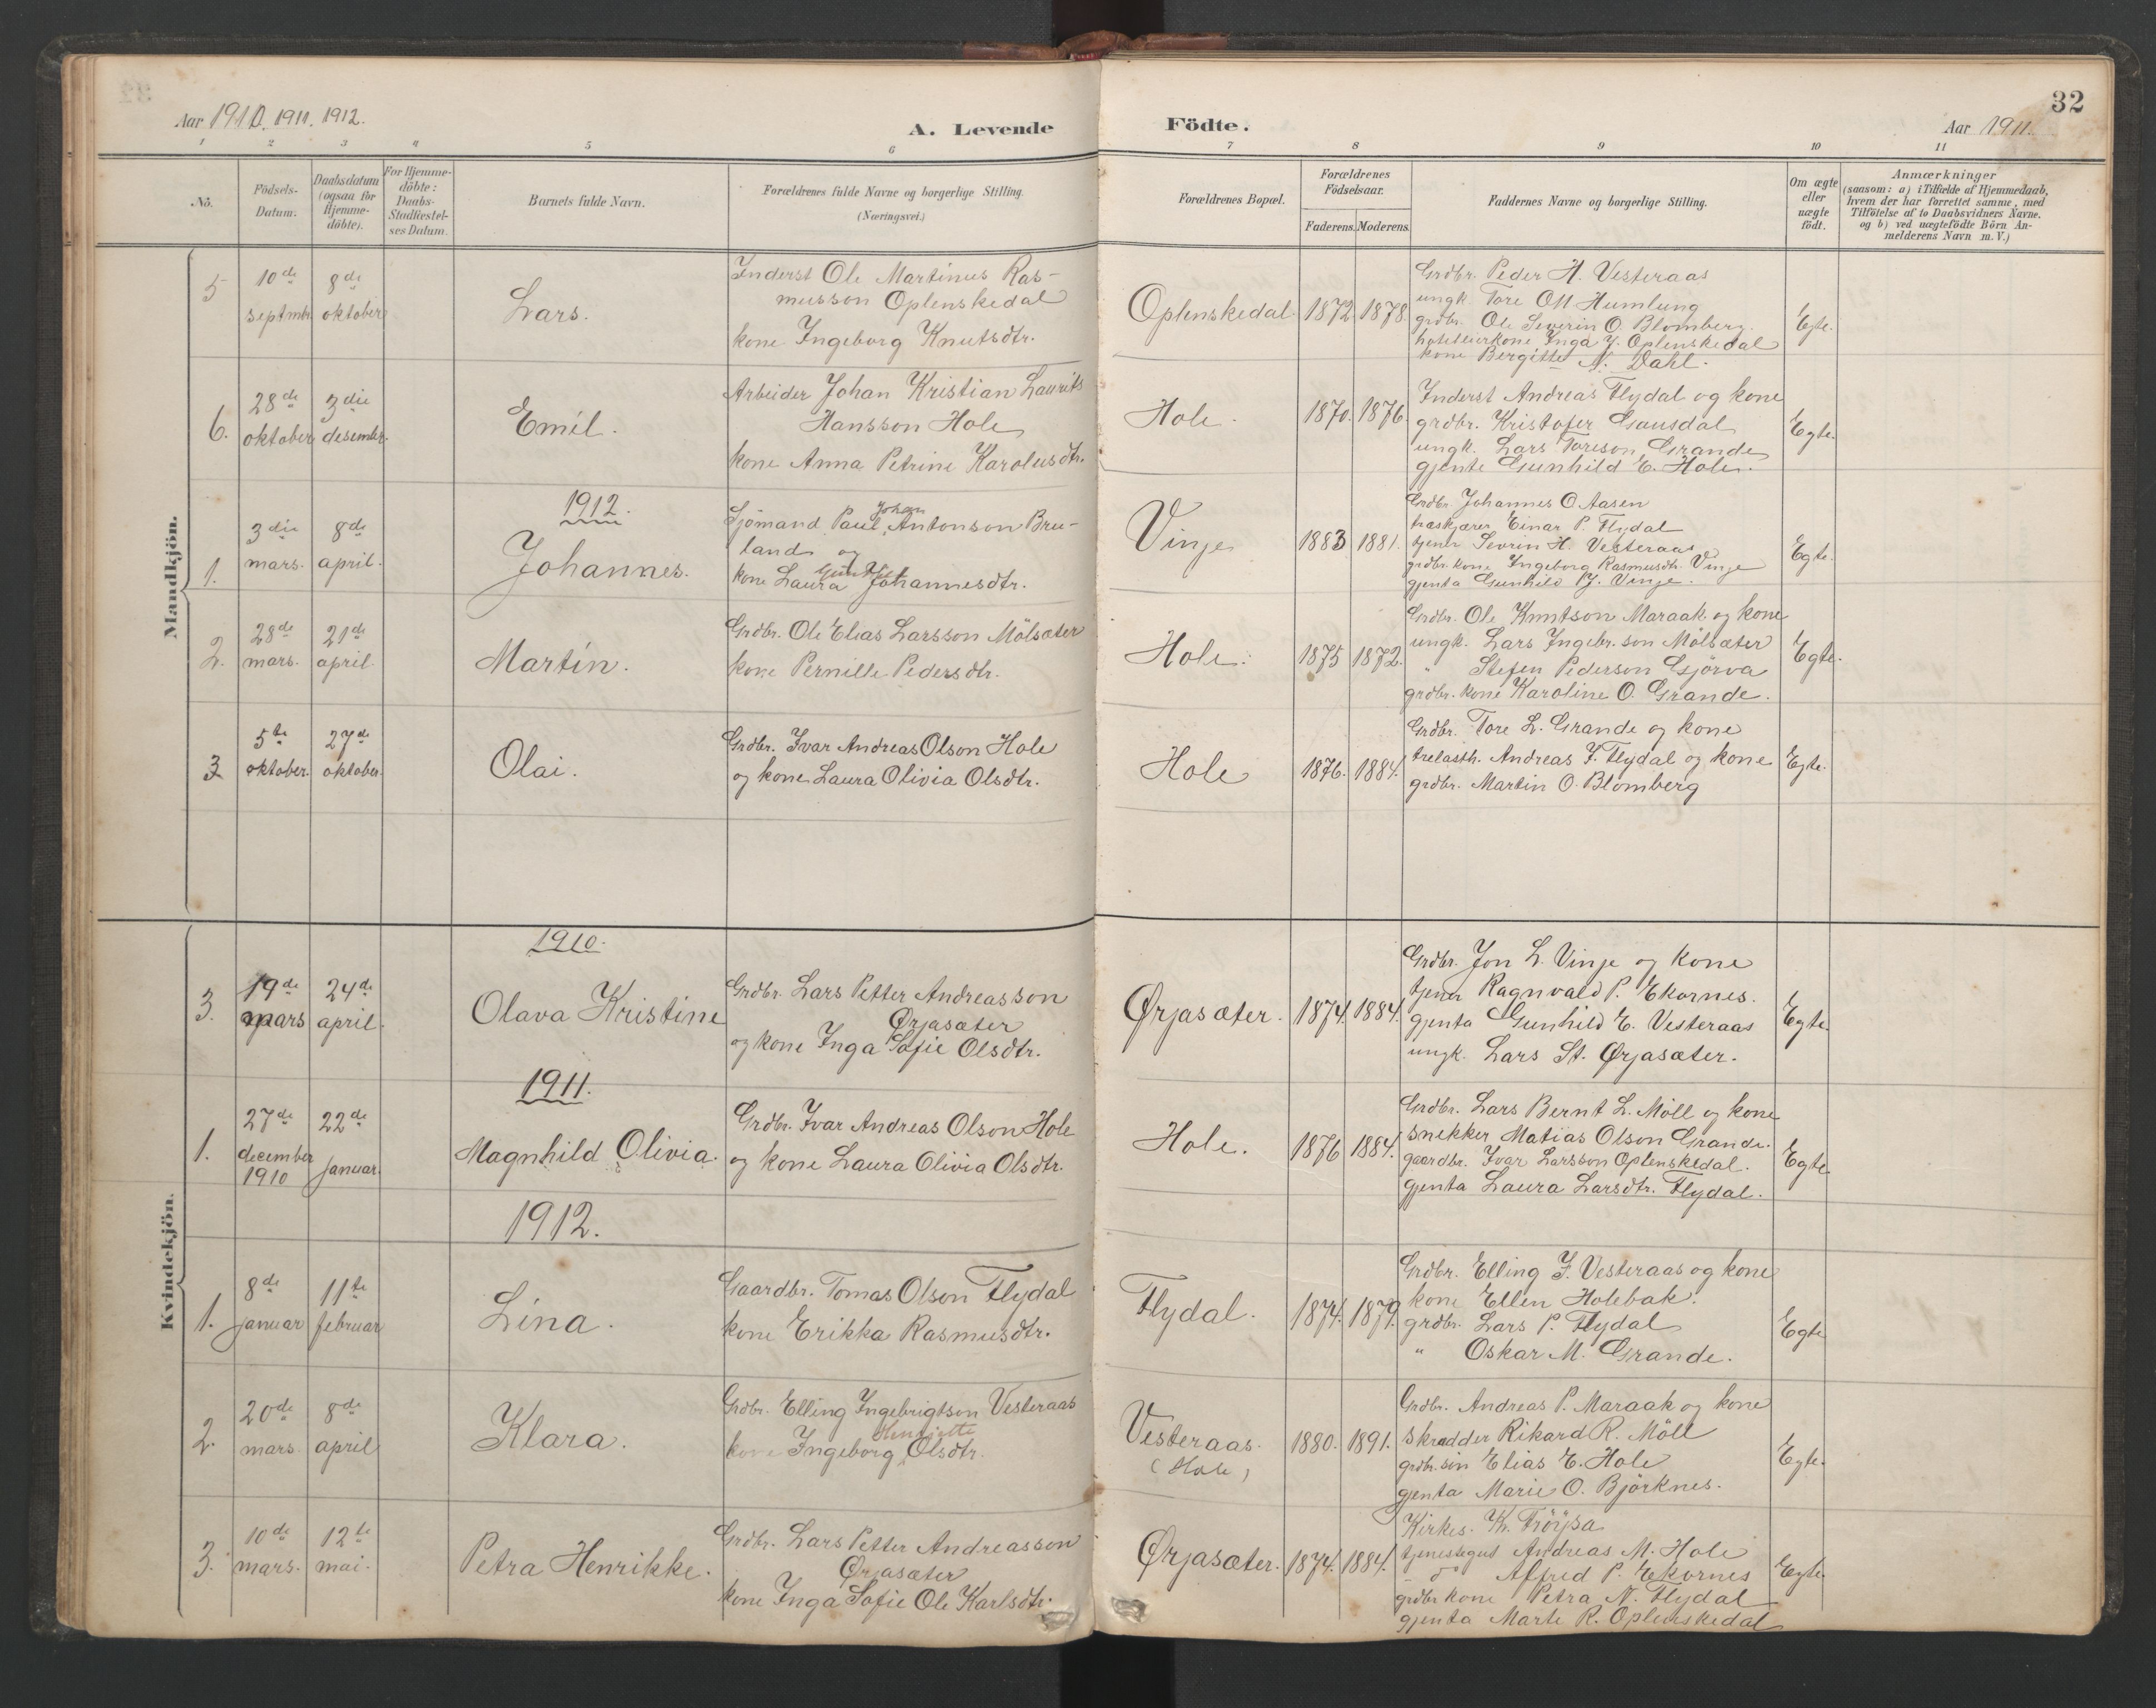 Aar 1910. 1911. 1912.
A. Levende
Födte.
Aar 1911.
32
1 2 3 4 5 6 7 8 9 10 11
No.
Födsels-
Datum.
Daabsdatum
(ogsaa for
Hjemme-
döbte).
For Hjemme-
döbte:
Daabs-
Stadfæstel-
ses Datum.
Barnets fulde Navn.
Forældrenes fulde Navne og borgerlige Stilling.
(Næringsvei.)
Forældrenes Bopæl.
Forældrenes
Födselsaar.
Faderens. Moderens.
Faddernes Navne og borgerlige Stilling.
Om ægte
eller
uægte
födt.
Anmærkninger
(saasom: a) i Tilfælde af Hjemmedaab,
hvem der har forrettet samme, med
Tilföielse af to Daabsvidners Navne,
og b) ved uægtefödte Börn An-
melderens Navn m. V.)
Mandkjön.
5
10de
septmbr.
8de
oktober
Lars.
Inderst Ole Martinus Ras-
musson Oplenskedal
kone Ingeborg Knutsdtr.
Oplenskedal. 1872. 1878.
Grdbr. Peder H. Vesteraas
ungk. Tore Humlung
grdbr. Ole Severin O. Blomberg.
Inga J. Oplenskedal
kone Bergitte N. Dahl.
Egte.
6.
28de
oktober
3die
desember.
Emil.
Arbeider Johan Kristian Laurits
Hansson Hole
kone Anna Petrine Karolusdtr.
Hole. 1870. 1876.
Inderst Andreas Flydal og kone
grdbr. Kristofer Gausdal
ungk. Lars Toreson Grande
gjente Gunhild E. Hole.
Egte.
1912.
1.
3die
mars.
8de
april.
Johannes.
Sjömand Paul Johan Antonson Bru-
land og
kone Laura Johannesdtr.
Vinje 1883 1881.
Grdbr. Johannes O. Aasen
træskjærer Einar P. Flydal
tjener Sevrin H. Vesteraas
grdbr. kone Ingeborg Rasmusdtr. Vinje
gjenta Gunhild P. J. Vinje.
Egte.
2.
28de
mars.
21de
april.
Martin.
Grdbr. Ole Elias Larsson Mölsæter
kone Pernille Pedersdtr.
Hole. 1875 1872.
Grdbr. Ole Knutson Maraak og kone
ungk. Lars Ingebr. son Mölsæter
" Stefen Pederson Gjörva
grdbr. kone Karoline O. Grande.
Egte.
3
5te
oktober.
27de
oktober.
Olai.
Grdbr. Ivar Andreas Olson Hole
og kone Laura Olivia Olsdtr.
Hole 1876. 1884.
Grdbr. Tore L. Grande og kone
trelasth. Andreas J. Flydal og kone
grdbr. Martin O. Blomberg
Egte.
Kvindekjön.
1910.
3.
19de
mars
24de
april.
Olava Kristine
Grdbr. Lars Petter Andreasson
Ørjasæter
og kone Inga Sofie Olsdtr.
Ørjasæter. 1874. 1884.
Grdbr. Jon L. Vinje og kone
tjener Ragnvald P. Ekornes.
gjenta Gunhild E. Vesteraas
ungk. Lars St. Ørjasæter.
Egte.
1911.
1.
27de
december
1910
22de
januar.
Magnhild Olivia.
Grdbr. Ivar Andreas Olson Hole
og kone Laura Olivia Olsdtr.
Hole. 1876 1884.
Grdbr. Lars Bernt L. Möll og kone
snekker Matias Olson Grande.
gaardbr. Ivar Larsson Oplenskedal.
gjenta Laura Larsdtr. Flydal.
Egte
1912.
1.
8de
januar
11te
februar
Lina.
Gaardbr. Tomas Olson Flydal
kone Erikka Rasmusdtr.
Flydal. 1874. 1879.
Grdbr. Elling I. Vesteraas og kone
kone Ellen Holebak.
grdbr. Lars P. Flydal
" Oskar M. Grande.
Egte
2.
20de
mars
8de
april
Klara.
Grdbr. Elling Ingebrigtson Vesteraas
kone Ingeborg Henriette Olsdtr.
Vesteraas.
(Hole)
1880. 1891.
Grdbr. Andreas P. Maraak og kone
skrædder Rikard R. Möll
grdbr. sön Elias E. Hole
gjenta Marie O. Björknes.
Egte.
3.
10de
mars.
12te
mai.
Petra Henrikke.
Grdbr. Lars Petter Andreasson
Ørjasæter
kone Inga Sofie Ole Karlsdtr.
Ørjasæter. 1874. 1884.
Kirkes. K. Fröysa
tjenestegut Andreas M. Hole
" d° Alfred P. Ekornes
grdbr kone Petra N. Flydal
gjenta Marte R. Oplenskedal
Egte.